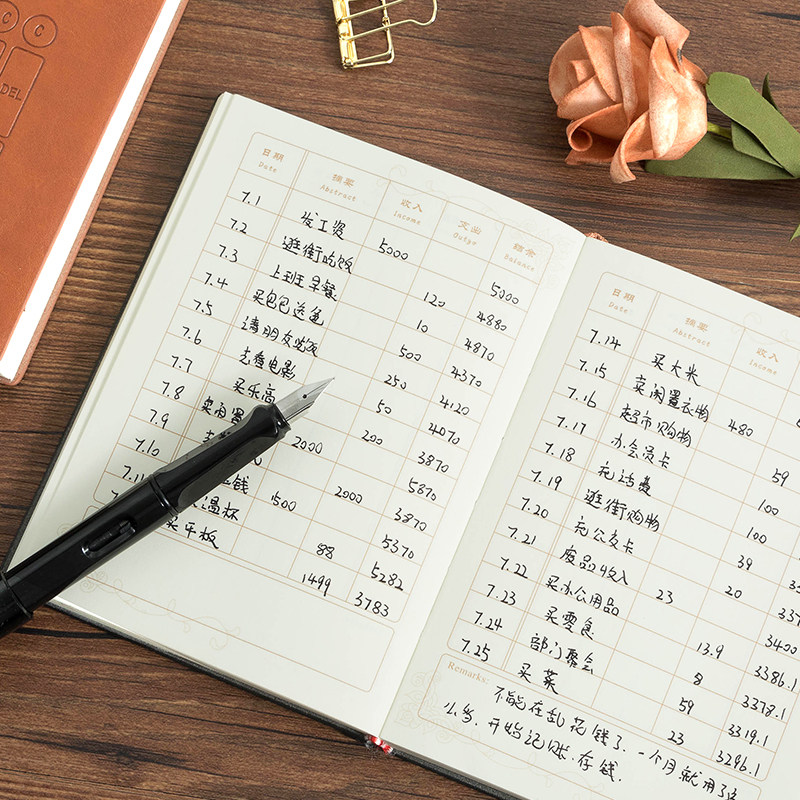 DEL
日期 摘要 收入 支出 结余
Date Abstract Income Outgo Balance
7.1 发工资 5000 5000
7.2 逛街吃饭 120 4880
7.3 上班早餐 10 4870
7.4 买包包送 500 4370
7.5 请朋友吃饭 250 4120
7.6 去看电影 50 4070
7.7 买乐高 200 3870
7.8 卖闲置 2000 5870
7.9 去 2000 3870
7.10 钱 1500 5370
7.11 温杯 88 5282
买平板 1499 3783
日期 摘要 收入
Date Abstract Income
7.14 买大米
7.15 卖闲置衣物 480
7.16 超市购物 59
7.17 办会员卡 100
7.18 充话费 100
7.19 逛街购物 39
7.20 充公交卡 20
7.21 废品收入 23 3400
7.22 买办公用品 13.9 3386.1
7.23 买零食 8 3378.1
7.24 部门聚会 59 3319.1
7.25 买菜 23 3296.1
Remarks:
不能在乱花钱了.一个月就用了这
么多.开始记账.存钱.